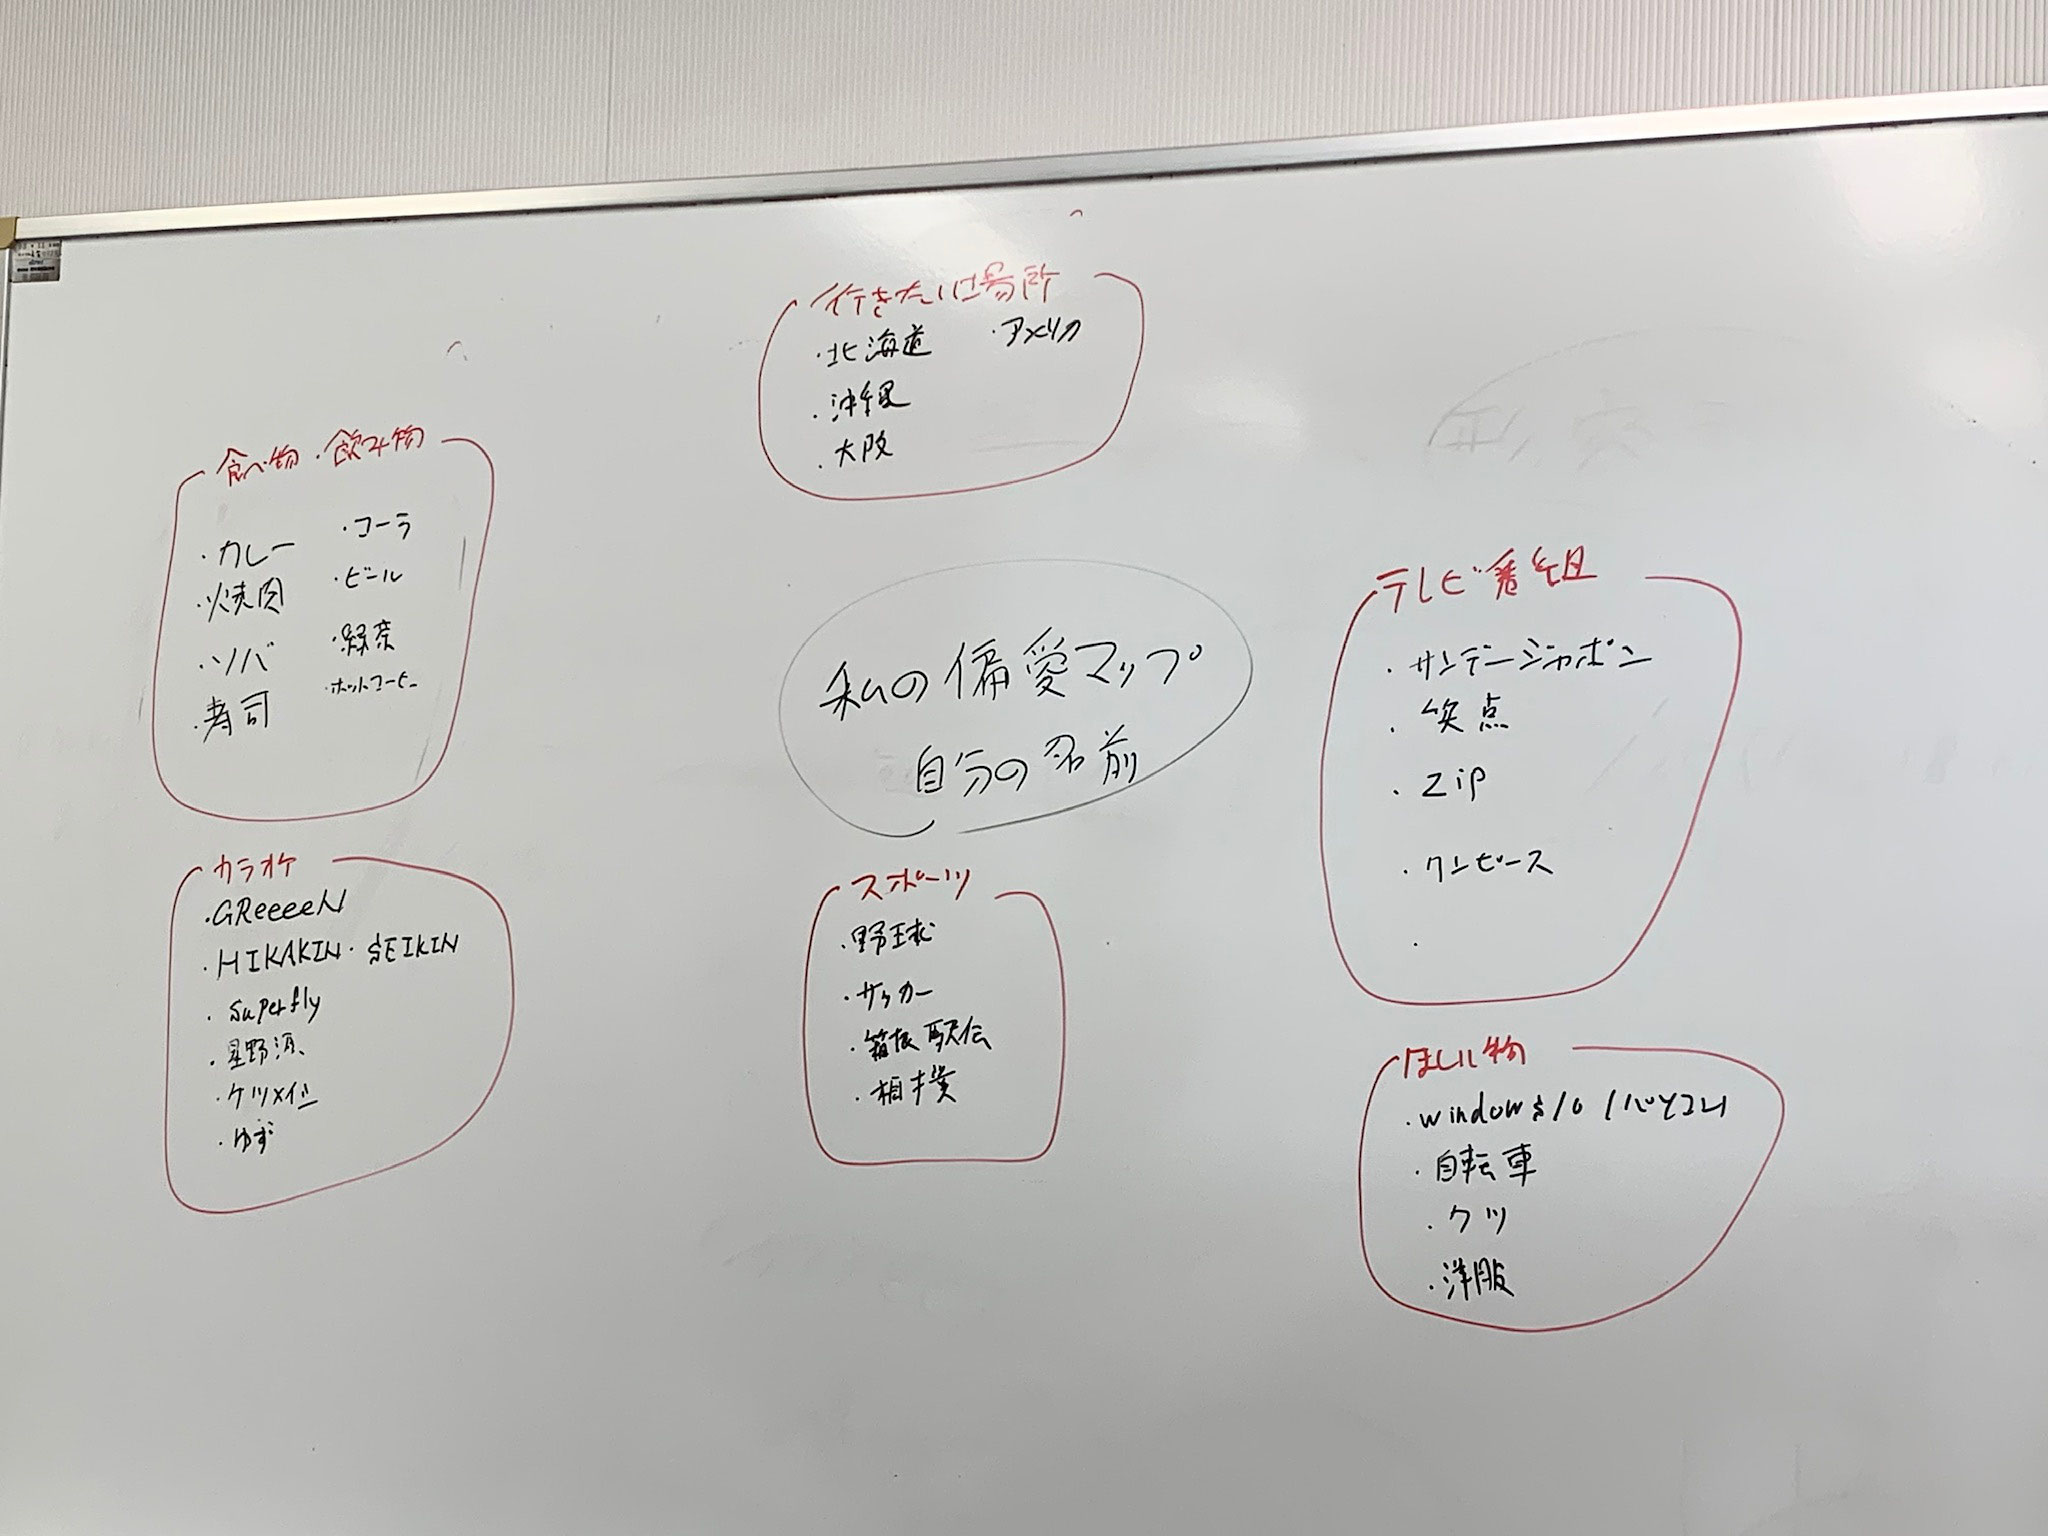 行きたい場所
・北海道 ・アメリカ
・沖縄
・大阪
食べ物・飲み物
・カレー ・コーラ
・焼肉 ・ビール
・ソバ ・緑茶
・寿司 ・ホットコーヒー
私の偏愛マップ
自分の名前
テレビ番組
・サンデージャポン
・笑点
・Zip
・ワンピース
・
カラオケ
・GReeeeN
・HIKAKIN・SEIKIN
・Superfly
・星野源
・ケツメイシ
・ゆず
スポーツ
・野球
・サッカー
・箱根駅伝
・相撲
ほしい物
・windows10 パソコン
・自転車
・クツ
・洋服